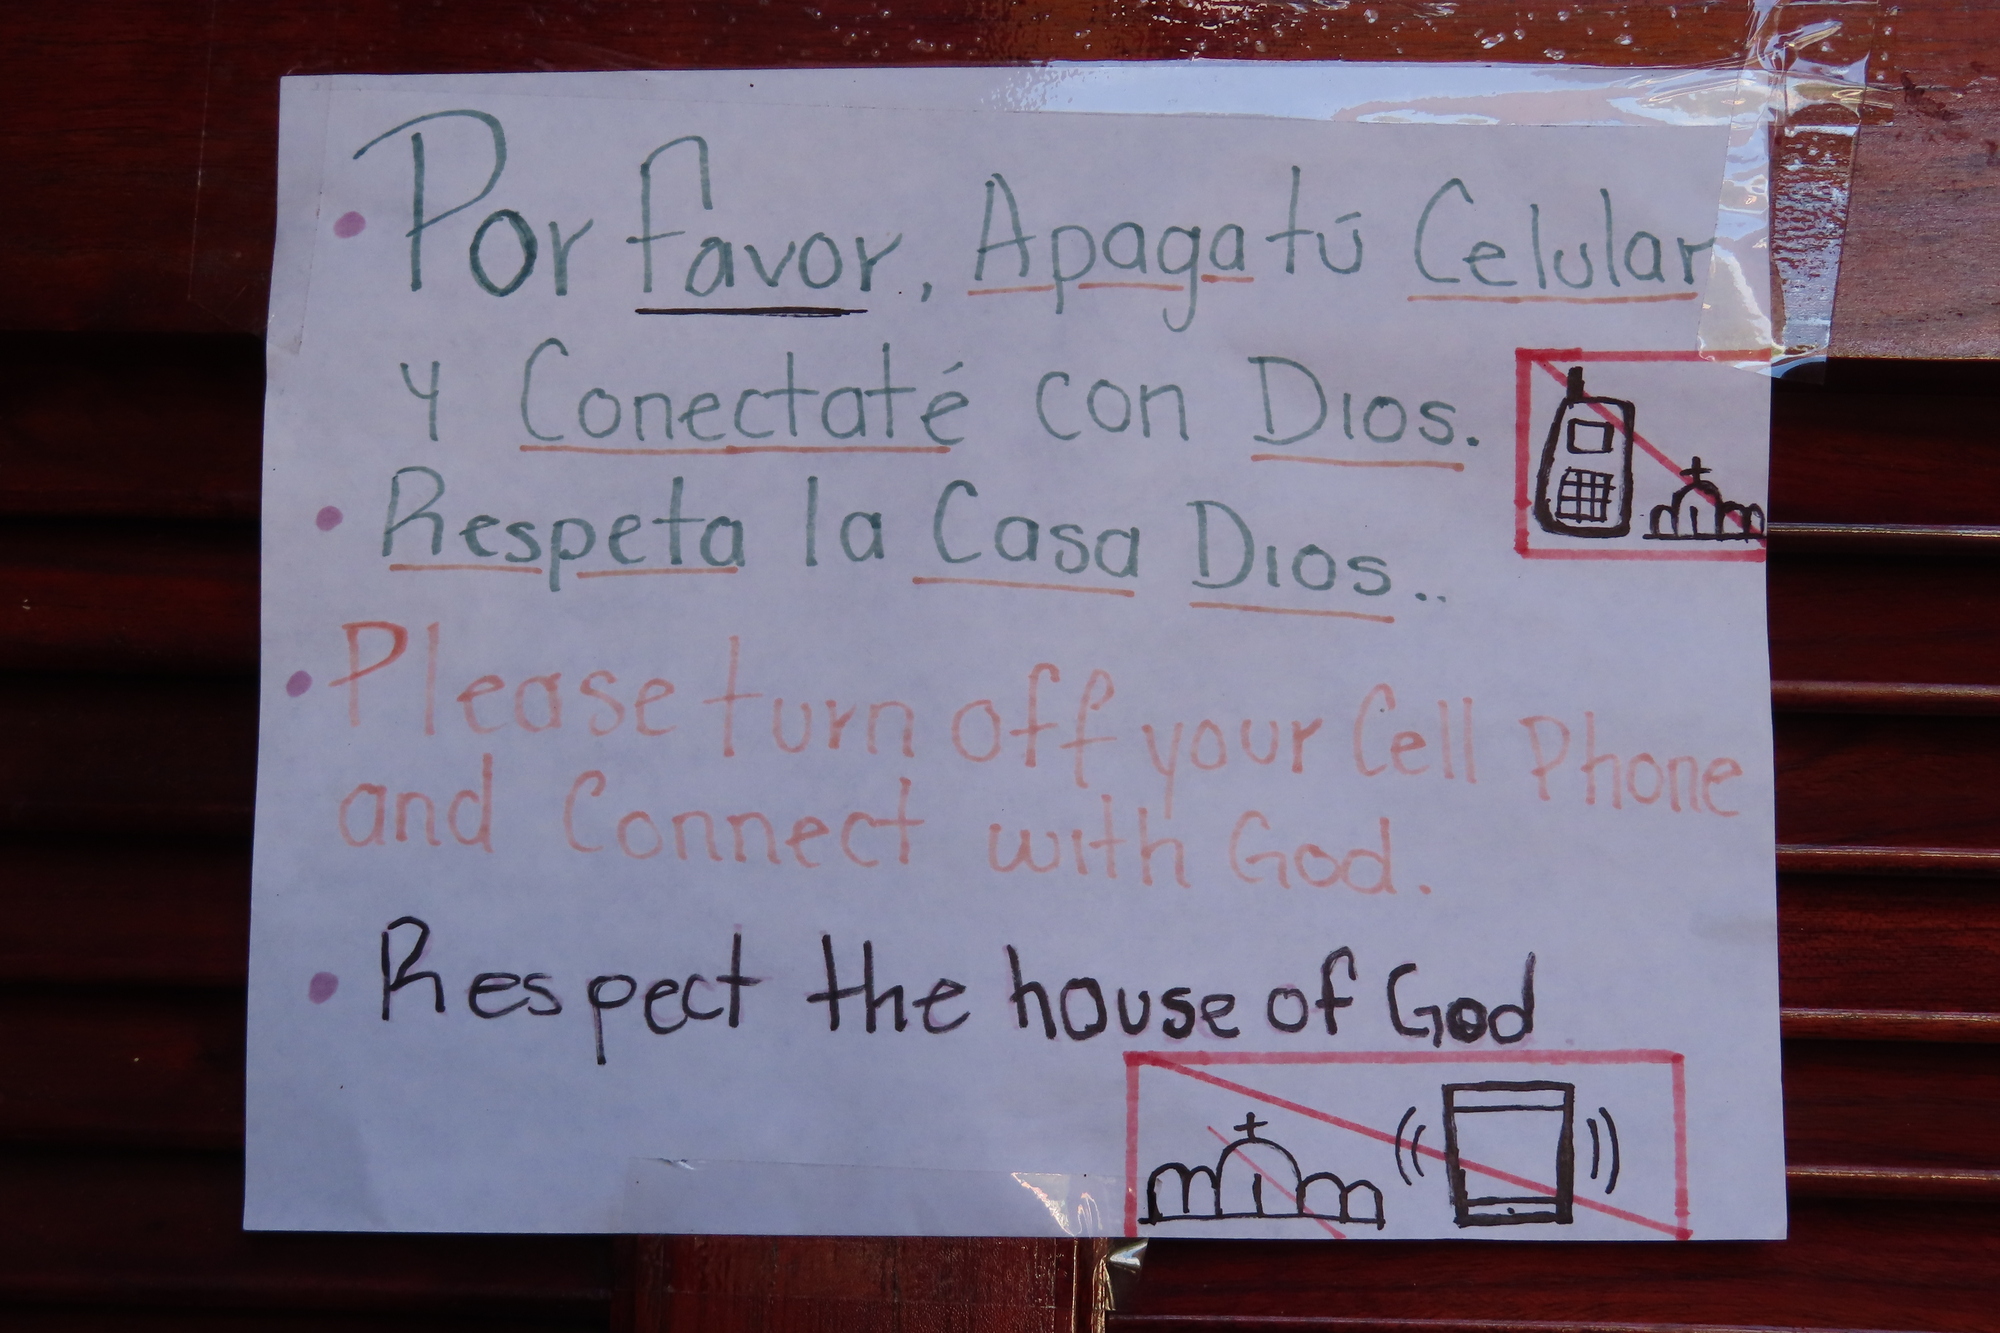 • Por favor, Apaga tú Celular
y Conectaté con Dios.
• Respeta la Casa Dios..
• Please turn off your Cell Phone
and Connect with God.
• Respect the house of God